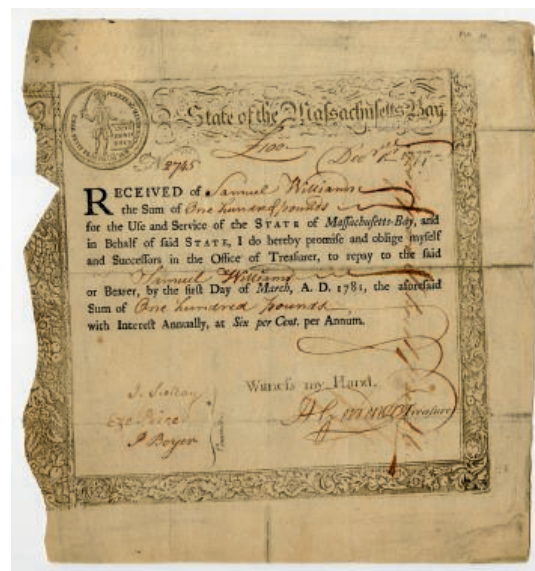 State of the Massachusetts Bay
£100
Decr 1st 1777
No 2745
RECEIVED of Samuel Williams
the Sum of One hundred pounds
for the Uſe and Service of the STATE of Maſſachuſetts-Bay, and
in Behalf of ſaid STATE, I do hereby promiſe and oblige myſelf
and Succeſſors in the Office of Treaſurer, to repay to the ſaid
Samuel Williams
or Bearer, by the firſt Day of March, A. D. 1781, the aforeſaid
Sum of One hundred pounds
with Intereſt Annually, at Six per Cent. per Annum.
Witneſs my Hand,
Treaſurer
Eze Price
P Boyer